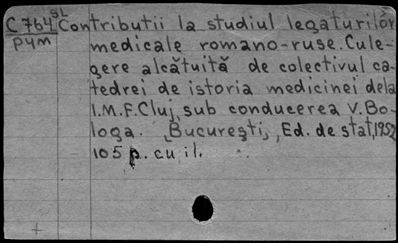 C 764 SL Contribuții la studiul legăturilor
P4M medicale romano-ruse. Cule-
gere alcătuită de colectivul ca-
tedrei de istoria medicinei dela
I.M.F. Cluj, sub conducerea V. Bo-
loga. București, Ed. de stat, 1952
105 p. cu il.